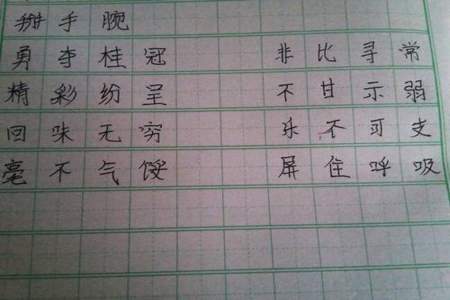 掰手腕
勇夺桂冠 非比寻常
精彩纷呈 不甘示弱
回味无穷 乐不可支
毫不气馁 屏住呼吸